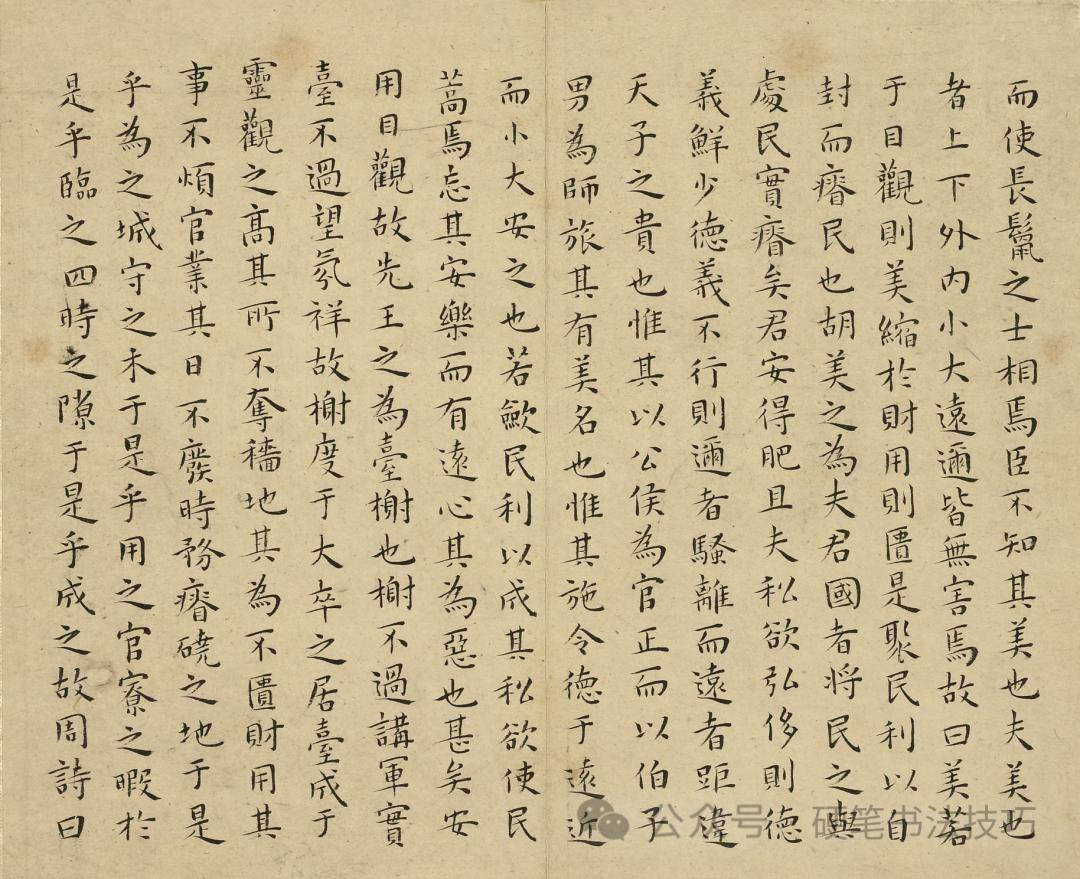 而使長鬣之士相焉臣不知其美也夫美也
者上下外內小大遠邇皆無害焉故曰美若
于目觀則美縮於財用則匱是聚民利以自
封而瘠民也胡美之為夫君國者將民之與
處民實瘠矣君安得肥且夫私欲弘侈則德
義鮮少德義不行則邇者騷離而遠者距違
天子之貴也惟其以公侯為官正而以伯子
男為師旅其有美名也惟其施令德于遠近
而小大安之也若歛民利以成其私欲使民
蒿焉忘其安樂而有遠心其為惡也甚矣安
用目觀故先王之為臺榭也榭不過講軍實
臺不過望氛祥故榭度于大卒之居臺成于
靈觀之高其所不奪穡地其為不匱財用其
事不煩官業其日不廢時務瘠磽之地于是
乎為之城守之木于是乎用之官寮之暇於
是乎臨之四時之隙于是乎成之故周詩曰
公众号 硬笔书法技巧